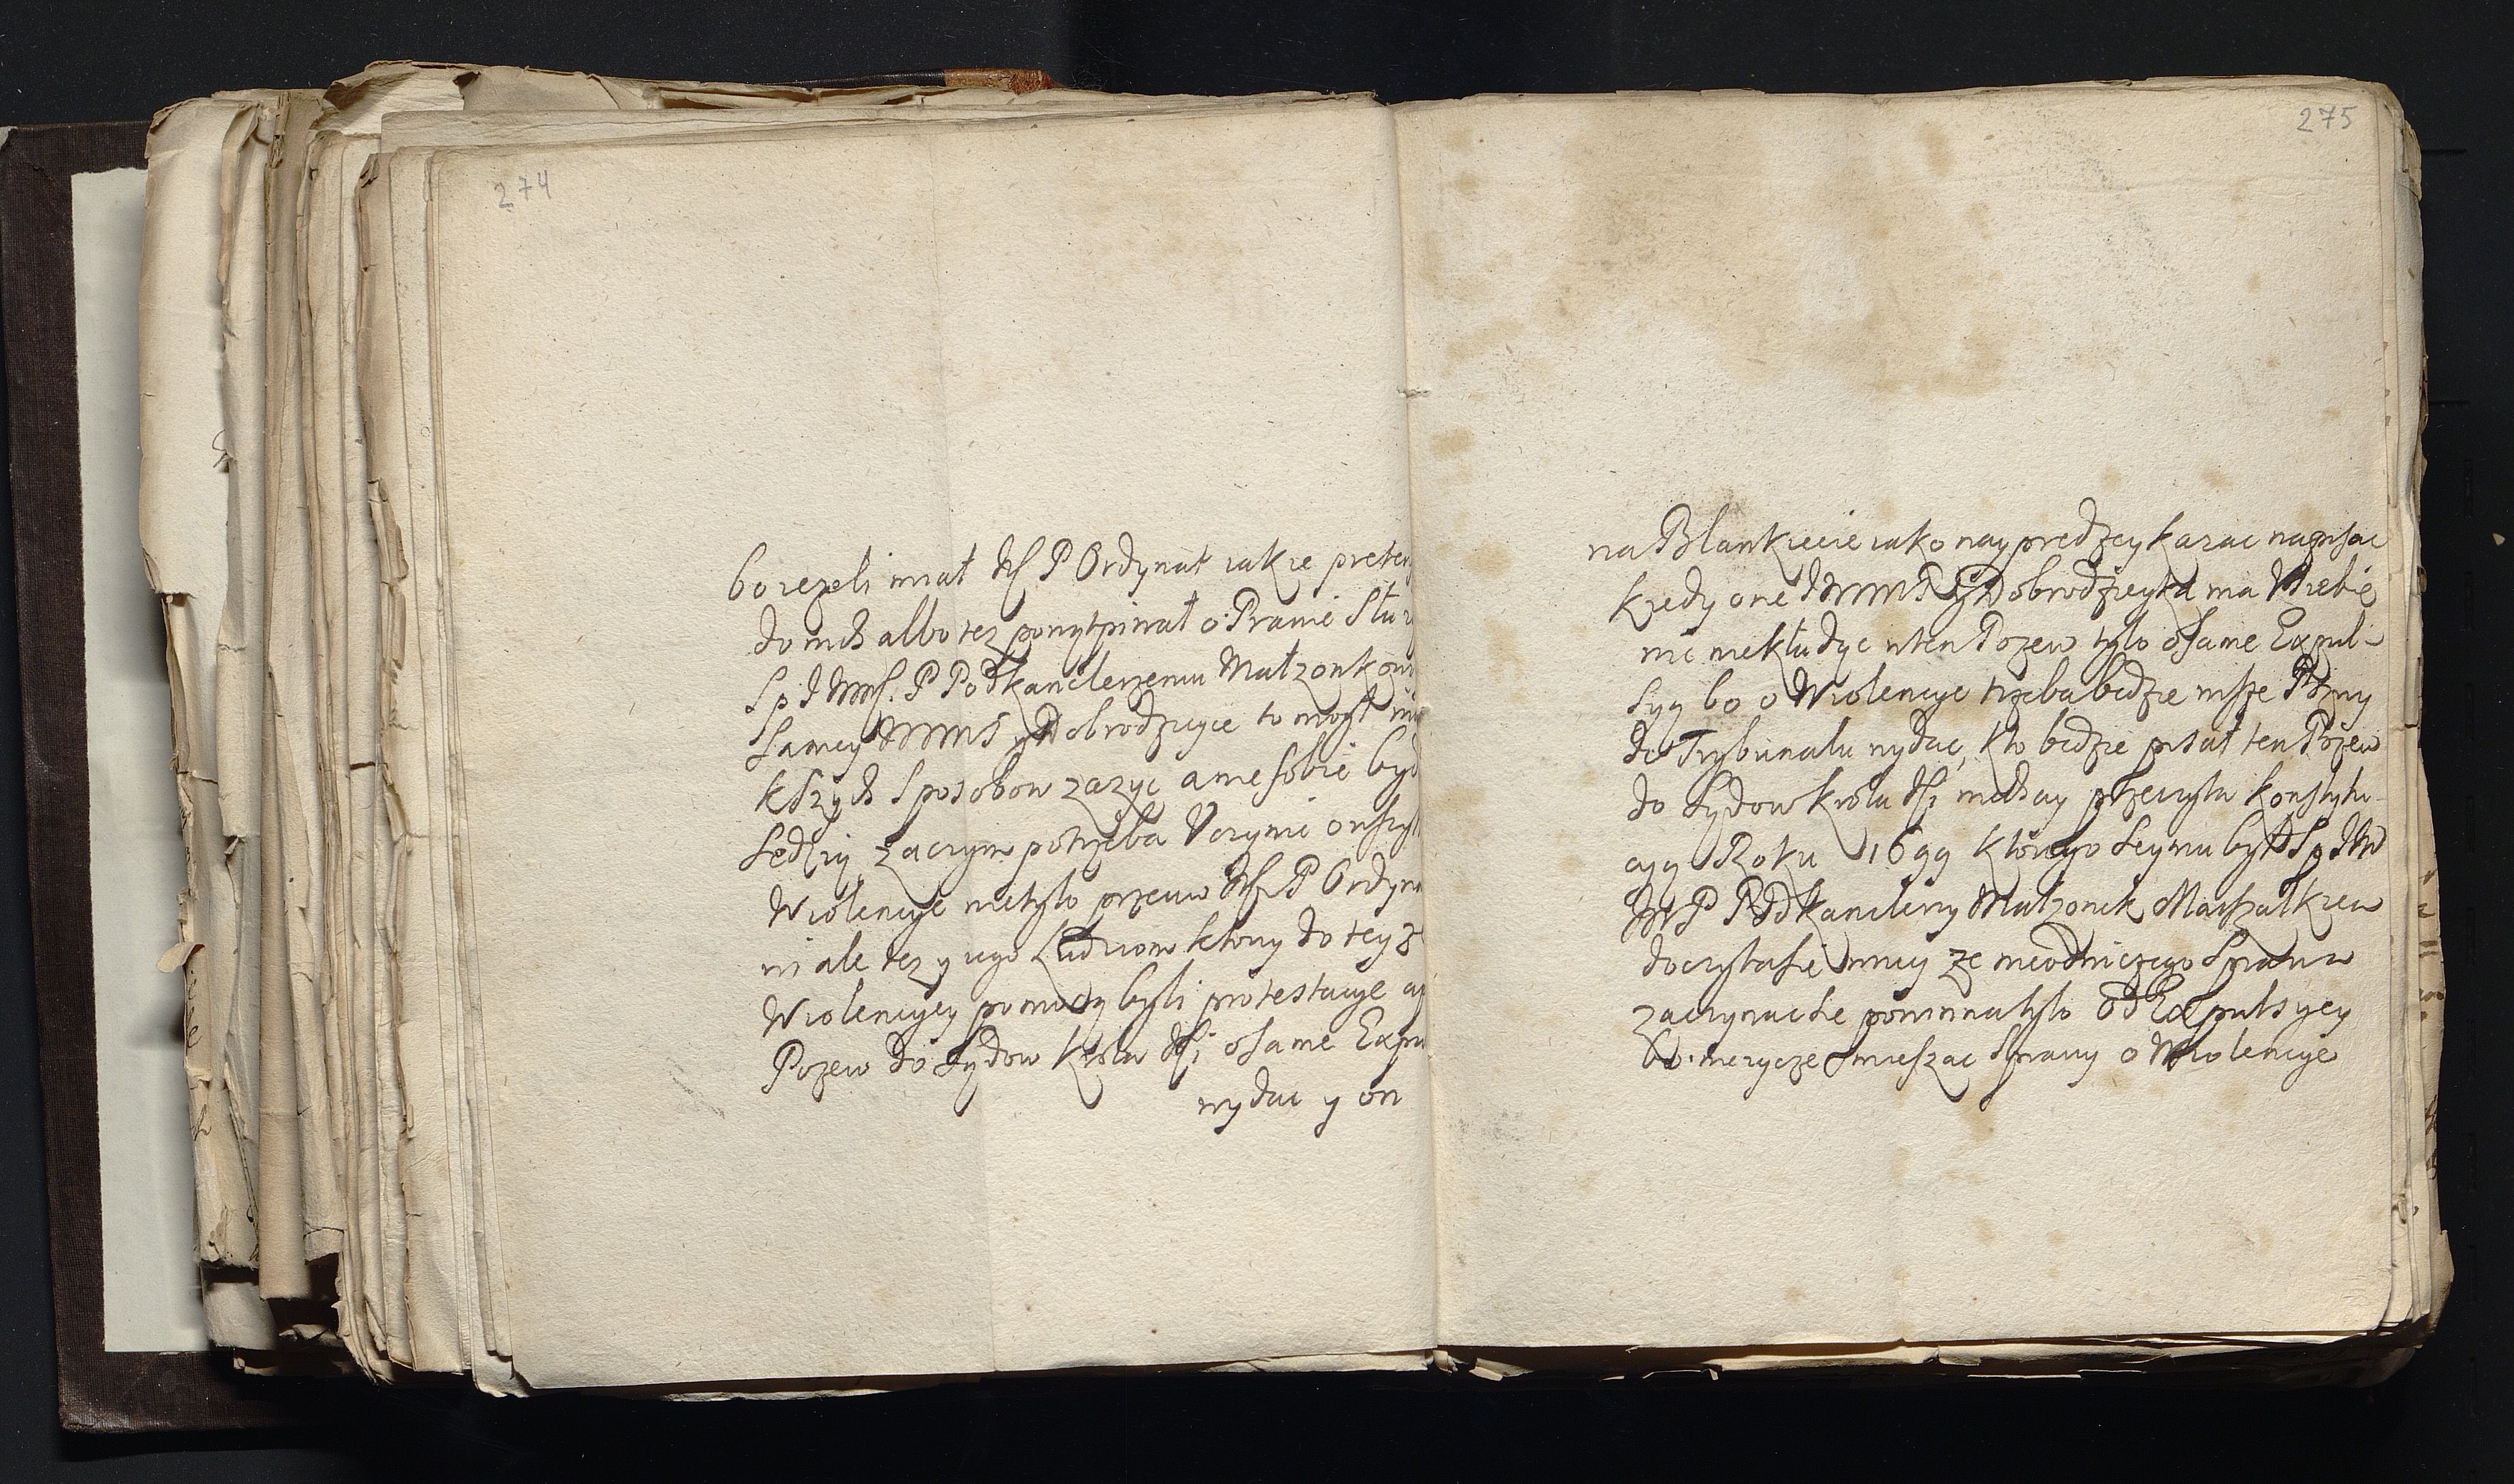 274
bo iezeli miał P Ordynat iakie preten
do nich albo tez powątpiwał o Prawie Słu
Sp J P Podkanclerzemu Małzonkowi
Samey Dobrodzieyce to mogł
kszych Sposobow zazyc a nie sobie byd
Sędzią zaczym potrzeba Vczynic o wszyt
Wiolencye nietylo przeciw P Ordyna
wi ale tez y iego Ludziom ktorzy do tey
Wiolencyey pomocą byli protestacye a
Pozew do Sądow Krola o same Expu
wydac y on
275
na Blankiecie iako nayprędzey kazac napisac
kiedy one Dobrodzieyka ma V siebie
nic niekładąc w ten Pozew tylo o same Expul-
syą bo o Wiolencye trzeba będzie insze Pozwy
do Trybunału wydac, kto będzie pisał ten Pozew
do Sądow Krola niechay przeczyta Konstytu-
cyą Roku 1699 ktorego Seymu był Sp JW
P Podkanclerzy Małzonek Marszałkiem
doczyta się w niey ze nieodmiennego Sprawa
zaczynac sie powinna tylo od Expulsyey
bo nierycze mieszac Sprawy o Wiolencye